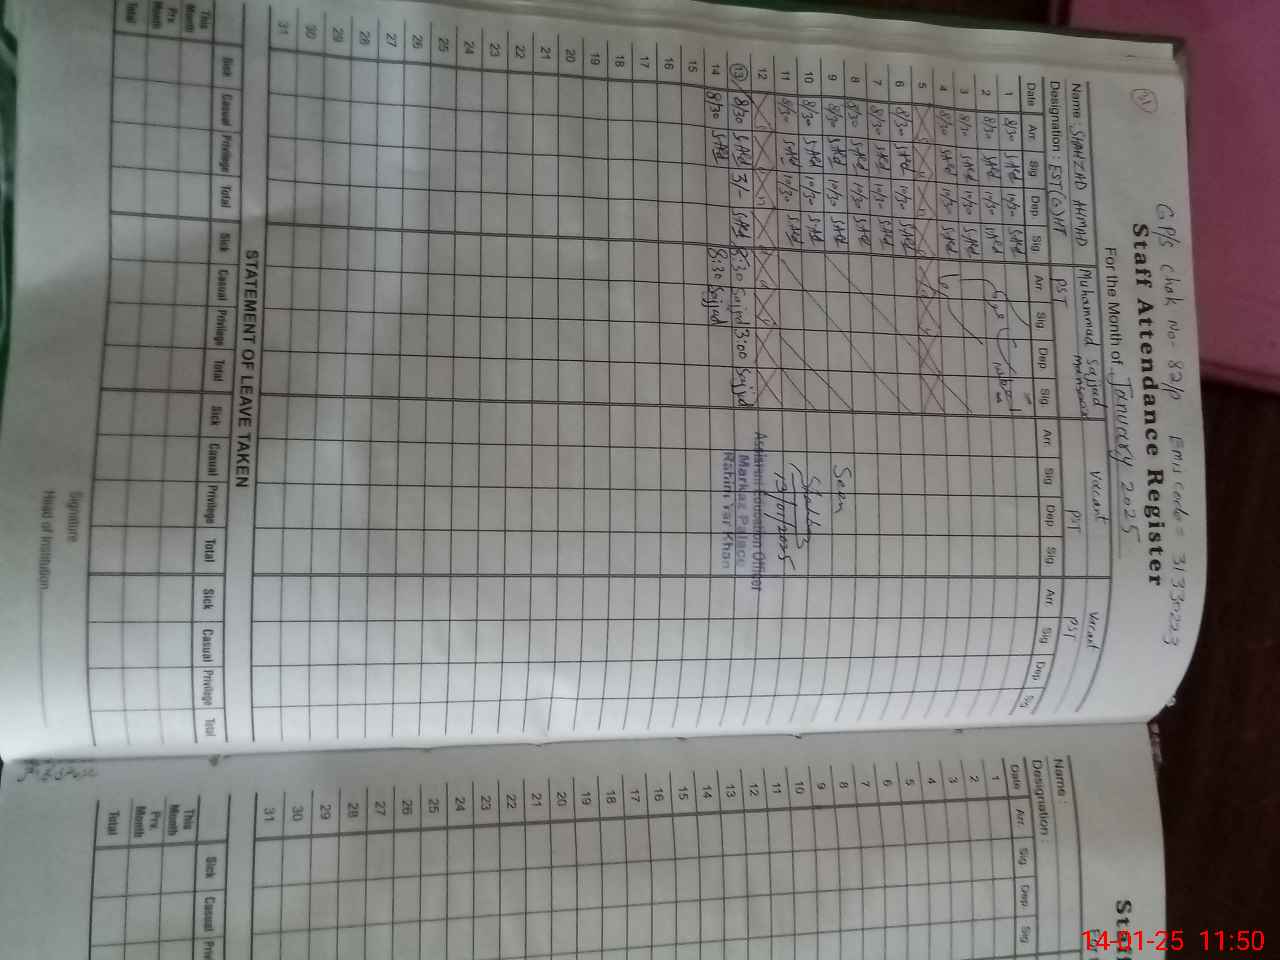 31
GP/S Chak No- 82/p Emis code = 31330293
Staff Attendance Register
For the Month of January 2025
Name : SHAHZAD AHMAD Muhammad Sajjad Vacant Vacant
Designation : EST(G)HT PST PST PST
Date Arr. Sig Dep. Sig. Arr. Sig. Dep. Sig. Arr. Sig Dep. Sig. Arr. Sig Dep Sig
1 8/30 SAHd 10/30 SAHd
2 8/30 SAHd 10/30 SAHd
3 8/30 SAHd 10/30 SAHd
4 8/30 SAHd 10/30 SAHd
5
6 8/30 SAHd 10/30 SAHd
7 8/30 SAHd 10/30 SAHd
8 8/30 SAHd 10/30 SAHd
9 8/30 SAHd 10/30 SAHd Seen
10 8/30 SAHd 10/30 SAHd
11 8/30 SAHd 10/30 SAHd 13/01/2025
12 Assistant Education Officer
13 8/30 SAHd 3/- SAHd 8:30 Sajjad 3:00 Sajjad Markaz Palace
14 8/30 SAHd 8:30 Sajjad Rahim Yar Khan
15
16
17
18
19
20
21
22
23
24
25
26
27
28
29
30
31
STATEMENT OF LEAVE TAKEN
Sick Casual Privilege Total Sick Casual Privilege Total Sick Casual Privilege Total Sick Casual Privilege Total
This Month
Prv. Month
Total
Signature
Head of Institution
Staff
Name :
Designation :
Date Arr. Sig Dep. Sig
1
2
3
4
5
6
7
8
9
10
11
12
13
14
15
16
17
18
19
20
21
22
23
24
25
26
27
28
29
30
31
Sick Casual Privi
This Month
Prv. Month
Total
14-01-25 11:50